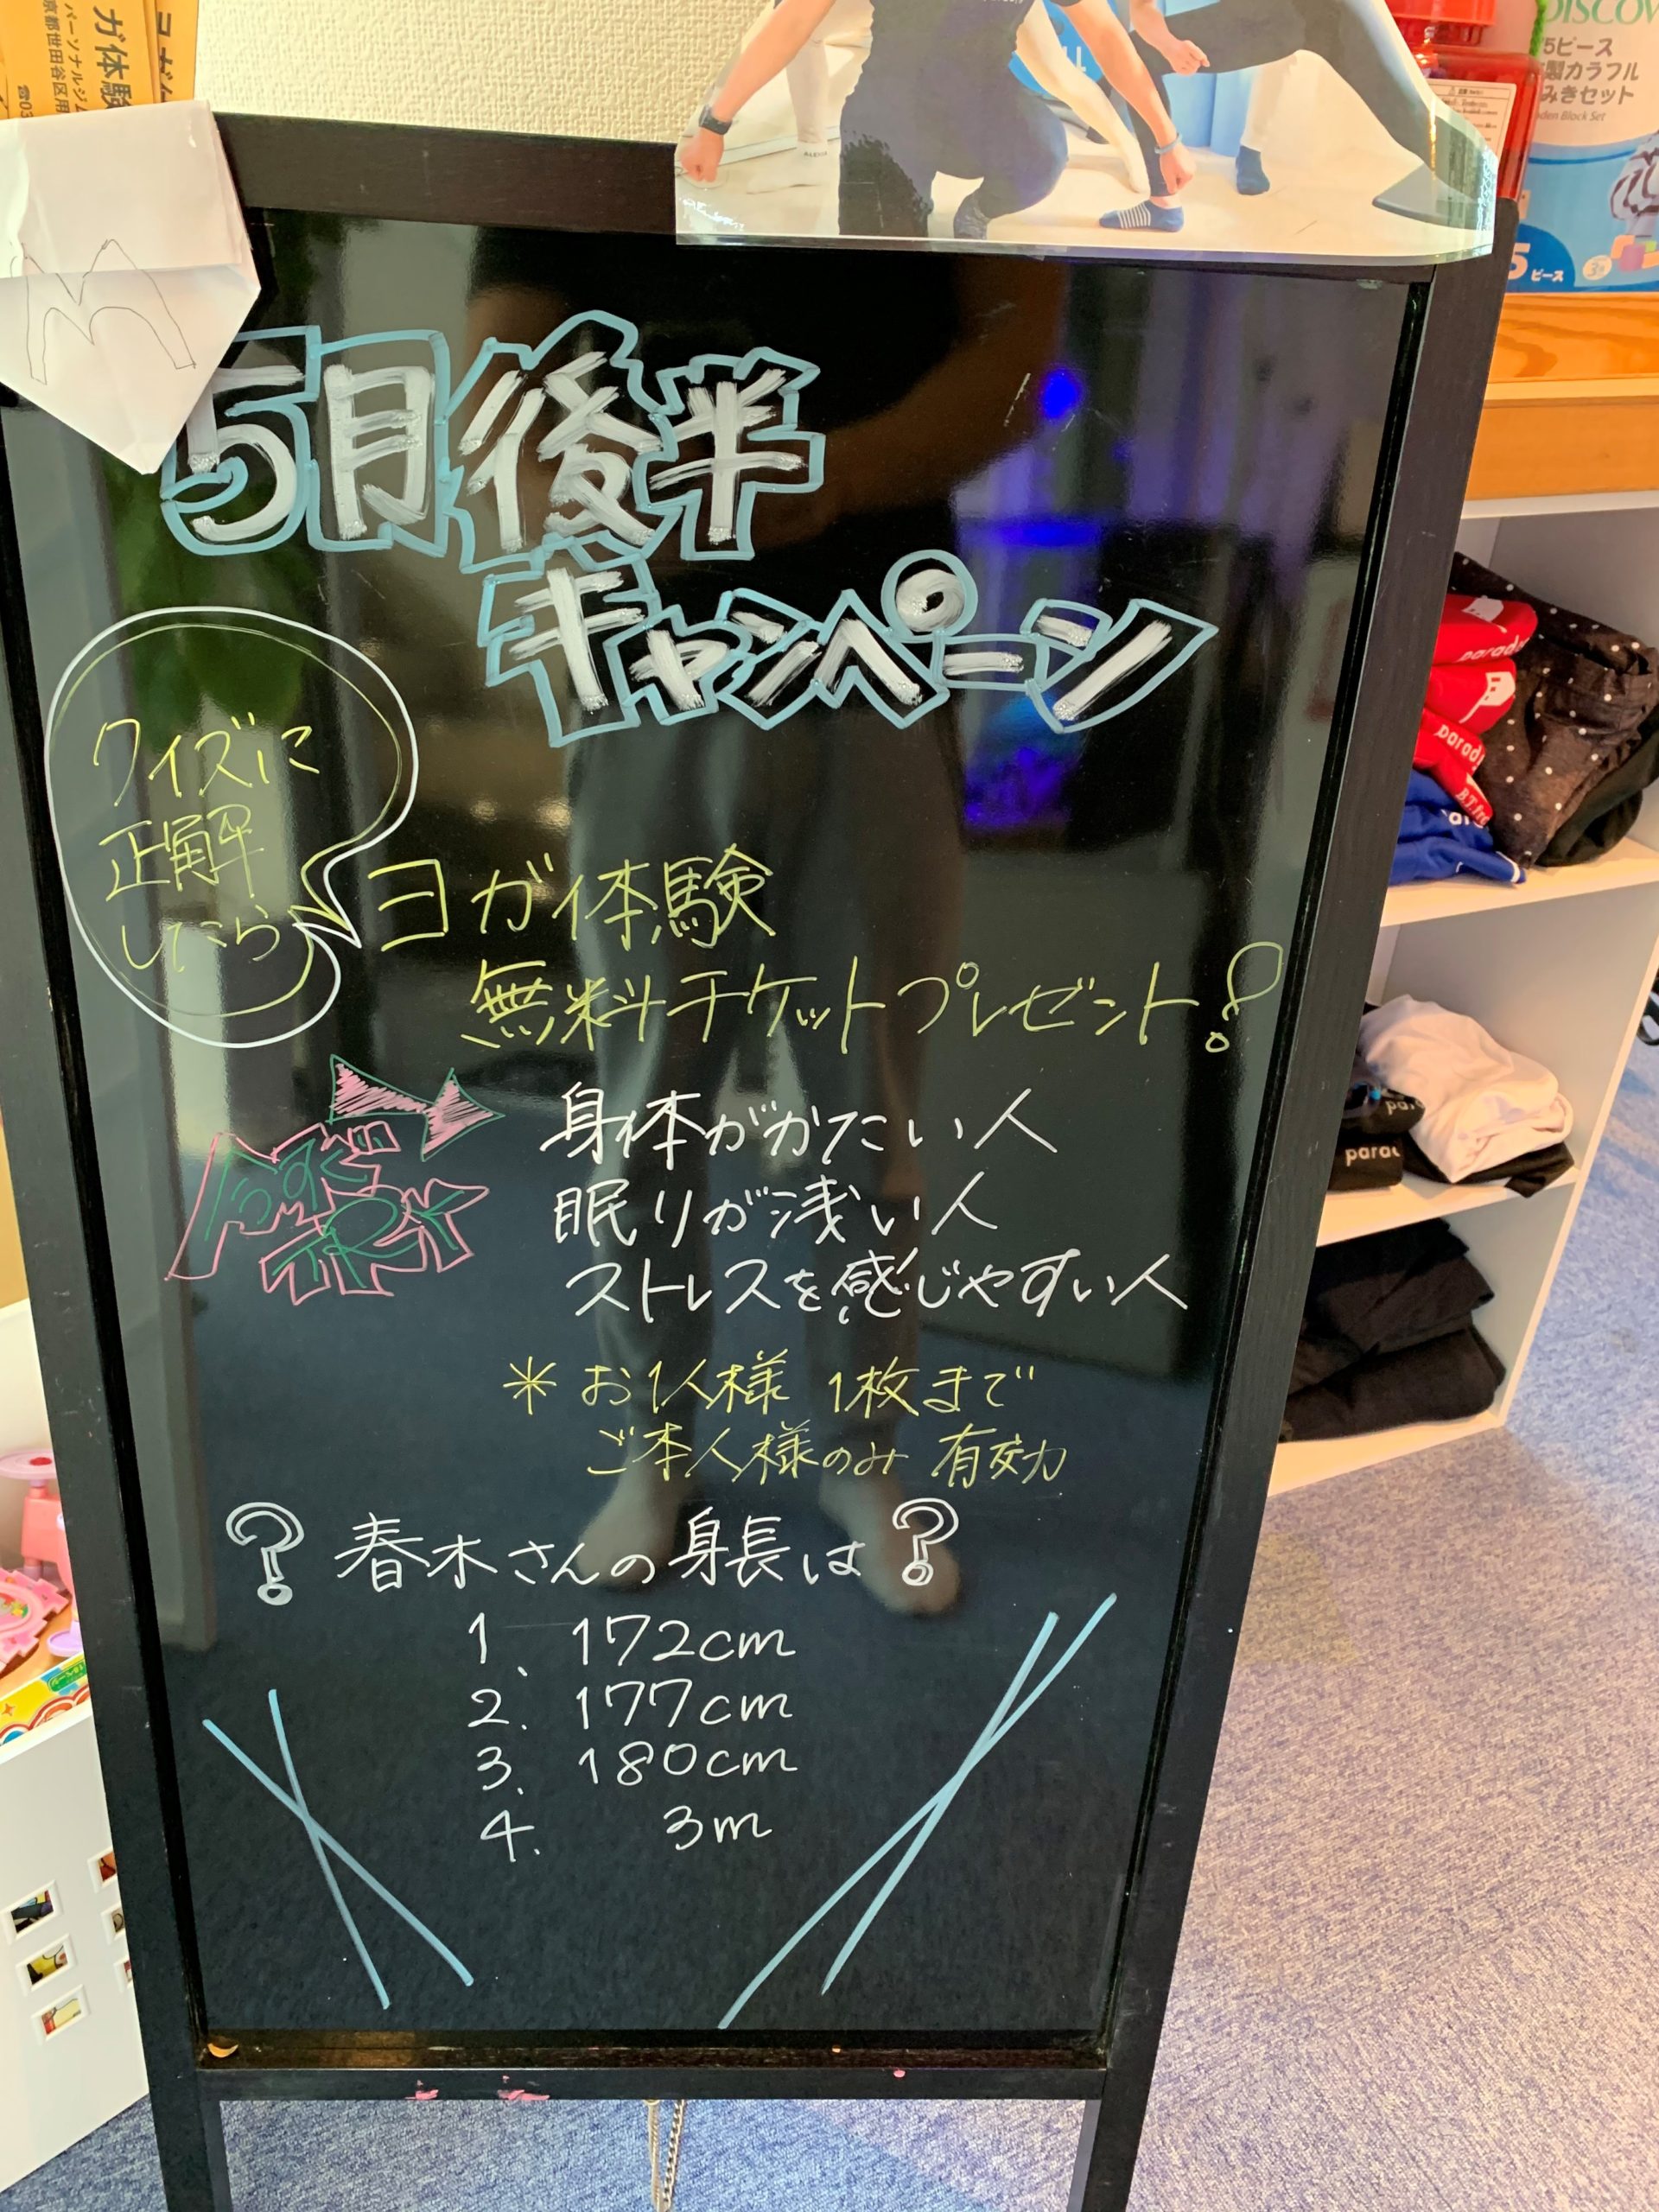 ガ体験
パーソナルジム
京都世田谷区用
☎03
DISCOV
5ピース
製カラフル
みきセット
den Block Set
5ピース
M
5月後半
キャンペーン
クイズに
正解
したら
ヨガ体験
無料チケットプレゼント!
TRY
身体がかたい人
眠りが浅い人
ストレスを感じやすい人
＊お1人様 1枚まで
ご本人様のみ 有効
? 春木さんの身長は?
1. 172cm
2. 177cm
3. 180cm
4. 3m
parad
parad
para